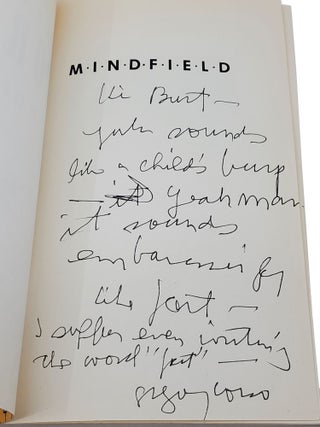 M·I·N·D·F·I·E·L·D
Hi Burt —
sounds
like a child's burp
— it yeah man
it sounds
embarassingly
like fart —
I suffer even writing
the word "fart" —
gregory corso